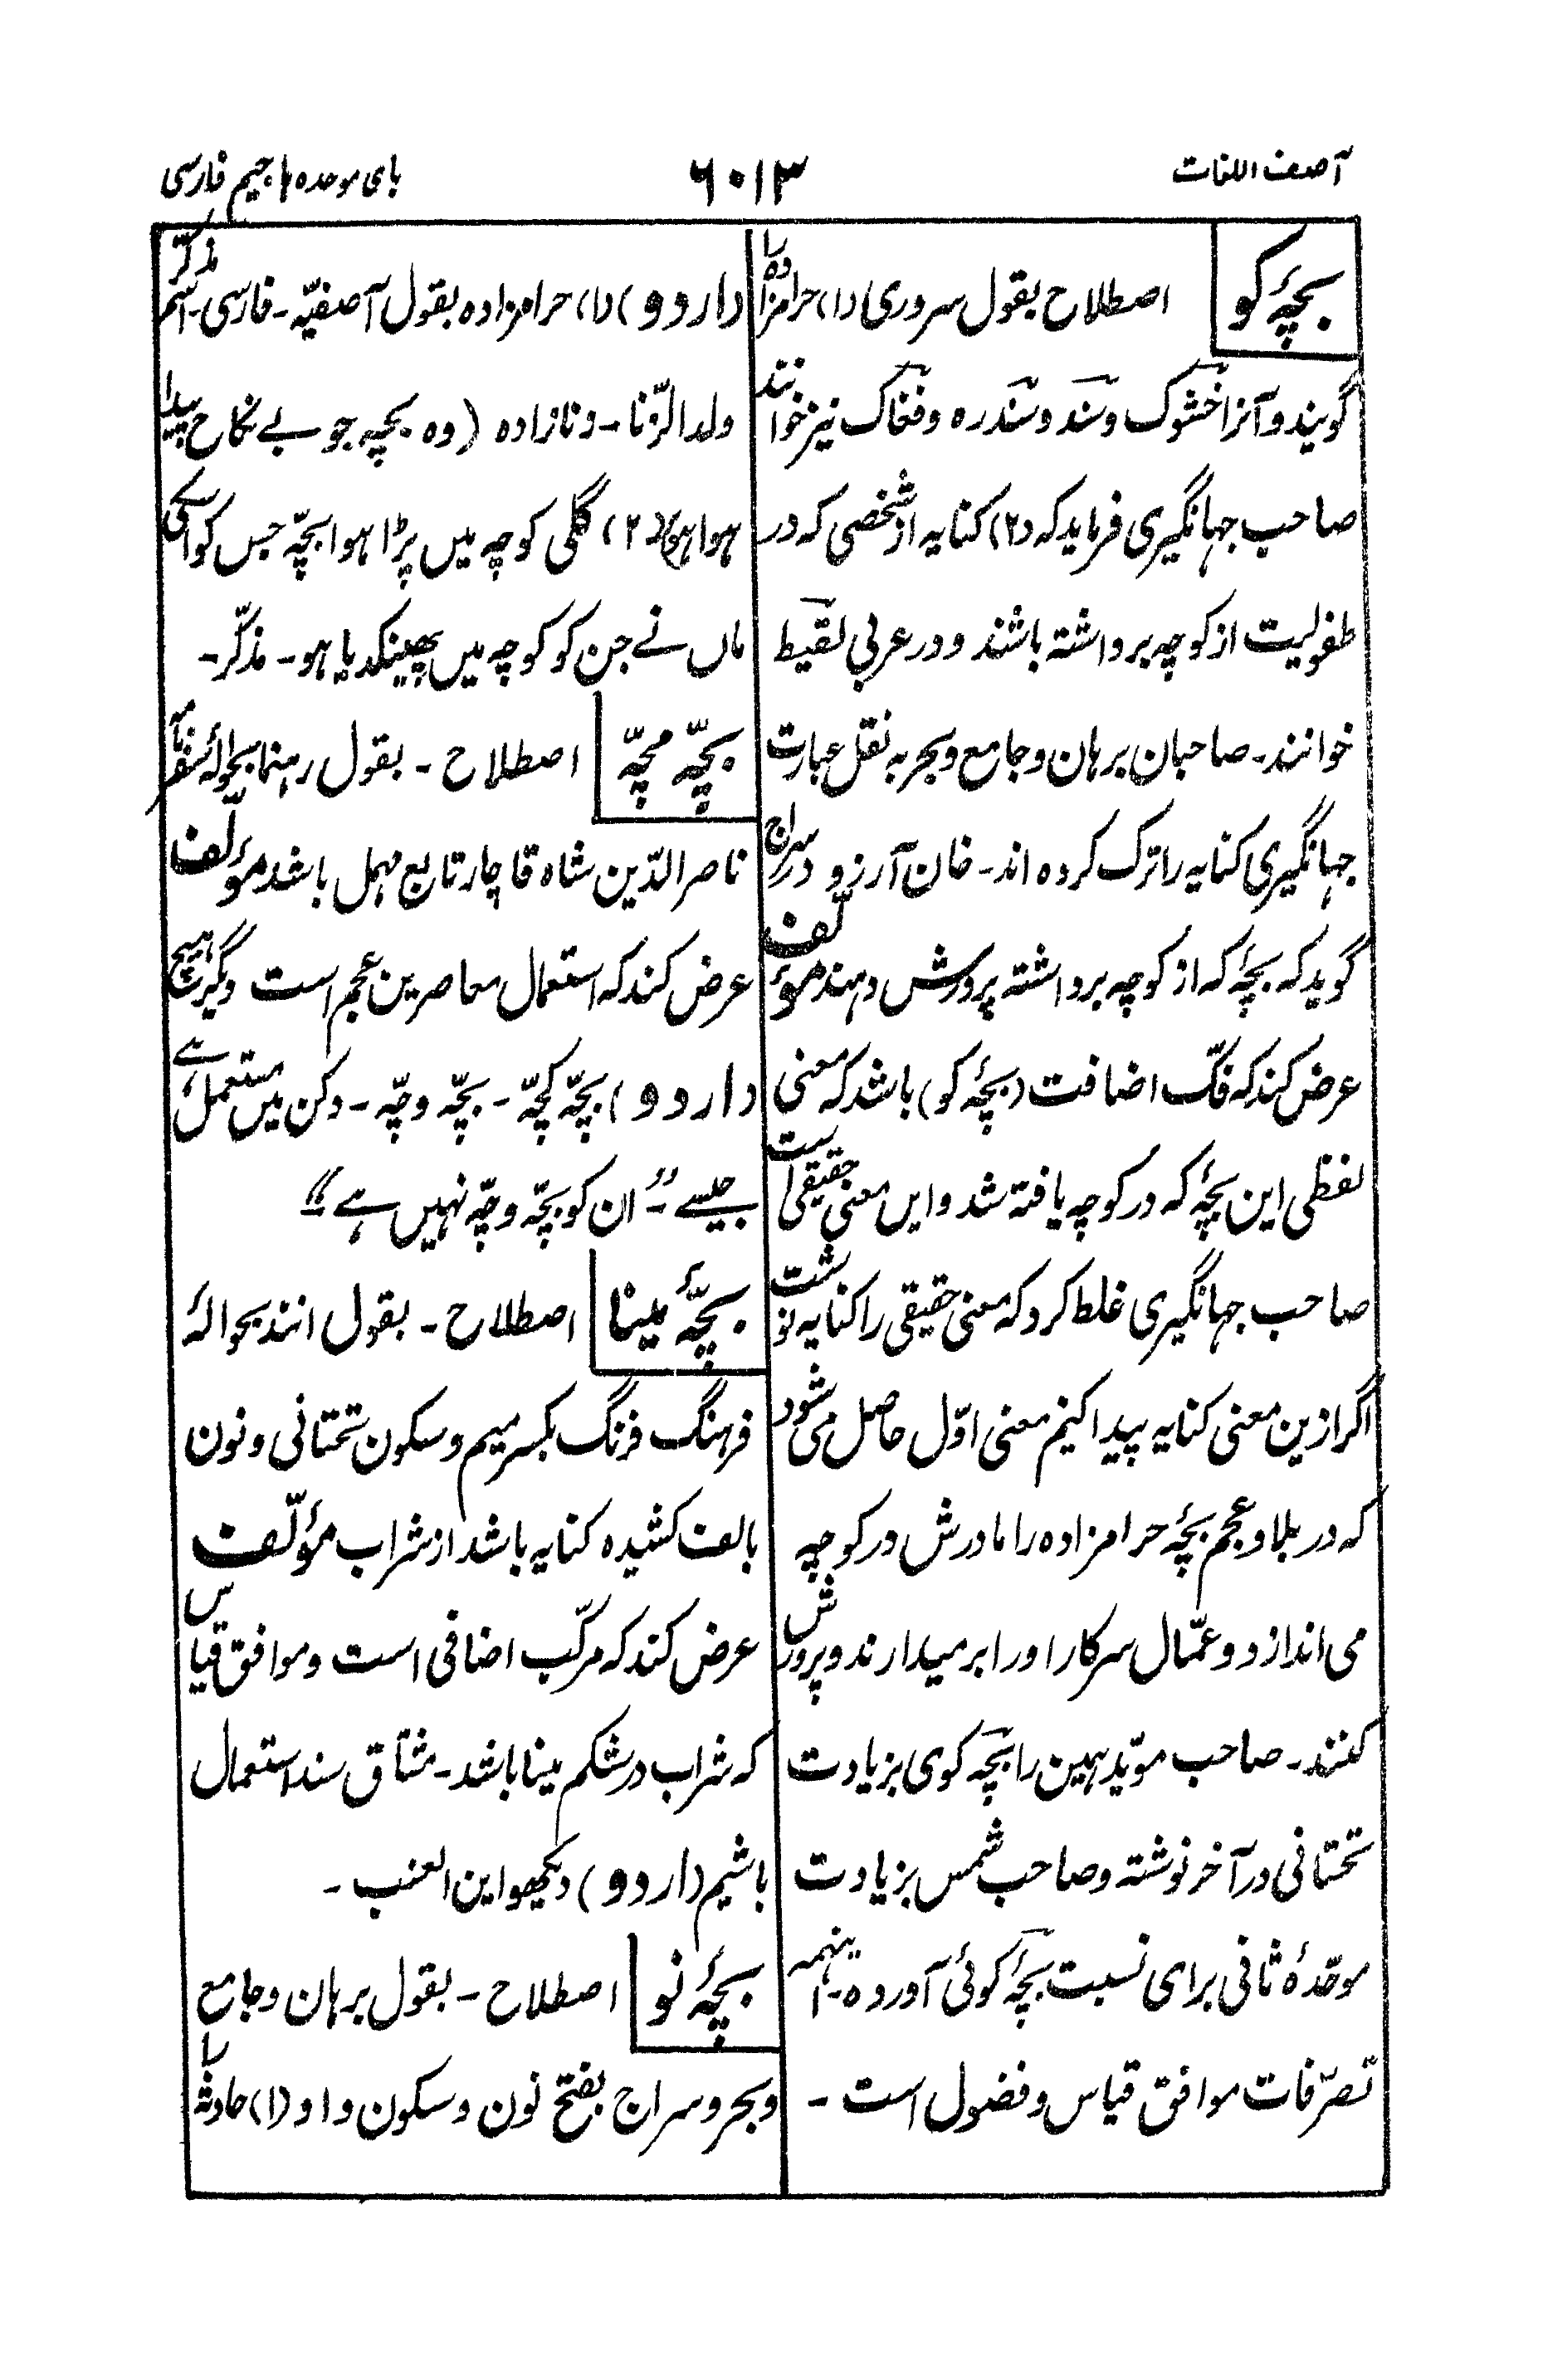 آصف اللغات
۶۰۱۳
بای موحده با جیم فارسی
بچۂ کو
اصطلاح بقول سروری (۱) حرامزاده را
گویند و آنرا خشوک و سند و سندره و فغاک نیز خوانند
صاحب جهانگیری فرماید که (۲) کنایه از شخصی که در
طفولیت از کوچه برداشته باشند و در عربی لقیط
خوانند۔ صاحبان برہان و جامع و بحر به نقل عبارت
جهانگیری کنایه را ترک کرده اند۔ خان آرزو در سراج
گوید که بچۂ که از کوچه برداشته پرورش دہند مؤلّف
عرض کند که فکّ اضافت (بچۂ کو) باشد که معنی
لفظی این بچۂ که در کوچه یافته شد و این معنی حقیقی است
صاحب جهانگیری غلط کرد که معنی حقیقی را کنایه نوشت
اگر ازین معنی کنایه پیدا کنیم معنی اوّل حاصل می شود
که در بلاد عجم بچۂ حرامزاده را مادرش در کوچه
می اندازد و عمّال سرکار او را بر میدارند و پرورش
کنند۔ صاحب مویّد ہمین را بچّۂ کوی بزیادت
تحتانی در آخر نوشته و صاحب شمس بزیادت
موحّدۂ ثانی برای نسبت بچۂ کوئی آورده۔ اینہمه
تصرّفات موافق قیاس و فضول است ۔
(اردو) (۱) حرامزاده بقول آصفیّه۔ فارسی۔ اسم مذکّر
ولد الزّنا۔ و نازاده (وه بچہ جو بے نکاح پیدا
ہوا ہو) (۲) گلی کوچہ میں پڑا ہوا بچّہ جس کو اسکی
ماں نے جن کو کوچہ میں پھینکدیا ہو۔ مذکّر۔
بچّہ مچّہ
اصطلاح ۔ بقول رہنما بحوالۂ سفرنامۂ
ناصر الدّین شاہ قاچار تابع مہمل باشد مؤلّف
عرض کند که استعمال معاصرین عجم است و دگر ہیچ
(اردو) بچّہ کچّہ ۔ بچّہ وچّہ ۔ دکن میں مستعمل ہے
جیسے ۔ "ان کو بچّہ وچّہ نہیں ہے"۔
بچّۂ مینا
اصطلاح ۔ بقول انند بحوالۂ
فرہنگ فرنگ بکسر میم و سکون تحتانی و نون
بالف کشیده کنایه باشد از شراب مؤلّف
عرض کند که مرکّب اضافی است و موافق قیاس
که شراب در شکم مینا باشد۔ مشتاق سند استعمال
باشیم (اردو) دیکھو ابن العنب ۔
بچۂ نو
اصطلاح ۔ بقول برہان و جامع
و بحر و سراج بفتح نون و سکون واو (۱) حادثه را